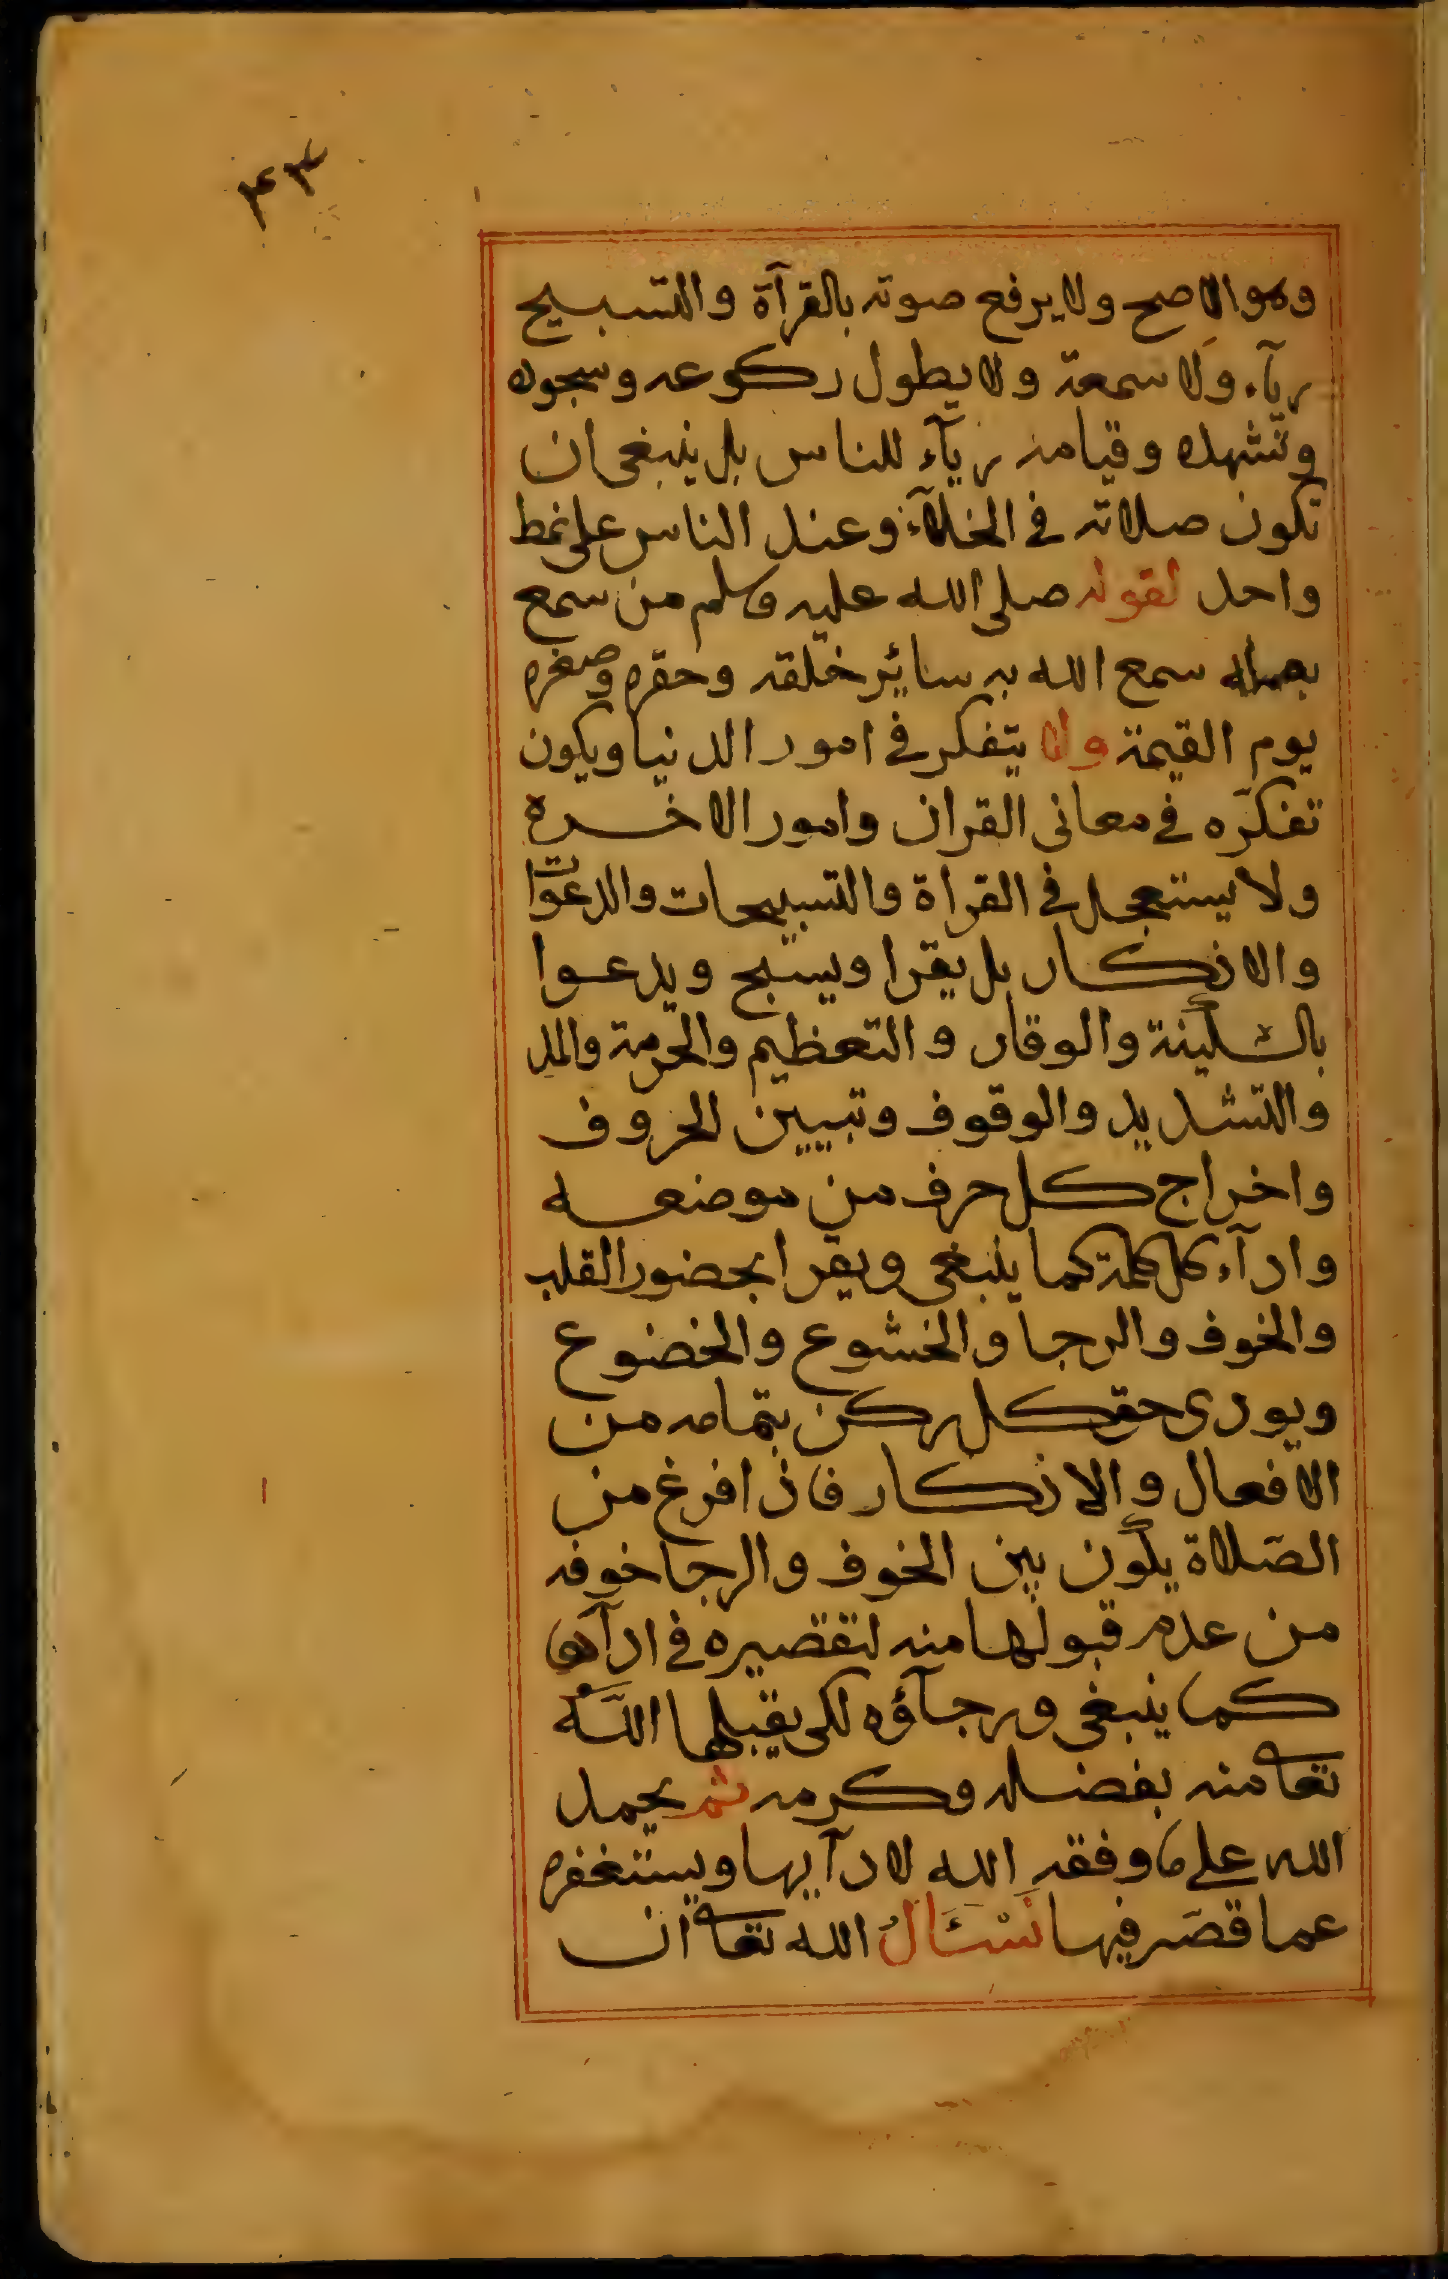 ٤٣
وهو الاصح ولا يرفع صوته بالقرآة والتسبيح
ريآء ولا سمعة ولا يطول ركوعه وسجوده
وتشهده وقيامه ريآء للناس بل ينبغى ان
تكون صلاته في الخلآء وعند الناس على نمط
واحد لقوله صلى الله عليه وسلم من سمع
بعمله سمع الله به سائر خلقه وحقره وصغره
يوم القيمة ولا يتفكر في امور الدنيا ويكون
تفكره في معانى القران وامور الاخره
ولا يستعجل في القراة والتسبيحات والدعوات
والاذكار بل يقرا ويسبح ويدعوا
بالسكينة والوقار والتعظيم والحرمة والمد
والتشديد والوقوف وتبيين الحروف
واخراج كل حرف من موضعه
وادآء كل كلمة كما ينبغى ويقرا بحضور القلب
والخوف والرجا والخشوع والخضوع
ويودى حق كل ركن بتمامه من
الافعال والاذكار فاذا فرغ من
الصلاة يكون بين الخوف والرجا خوفه
من عدم قبولها منه لتقصيره في ادآها
كما ينبغى ورجآؤه لكى يقبلها الله
تعا منه بفضله وكرمه ثم يحمد
الله على ما وفقه الله لادآيها ويستغفره
عما قصَر فيها نَسْئَالُ الله تعا ان